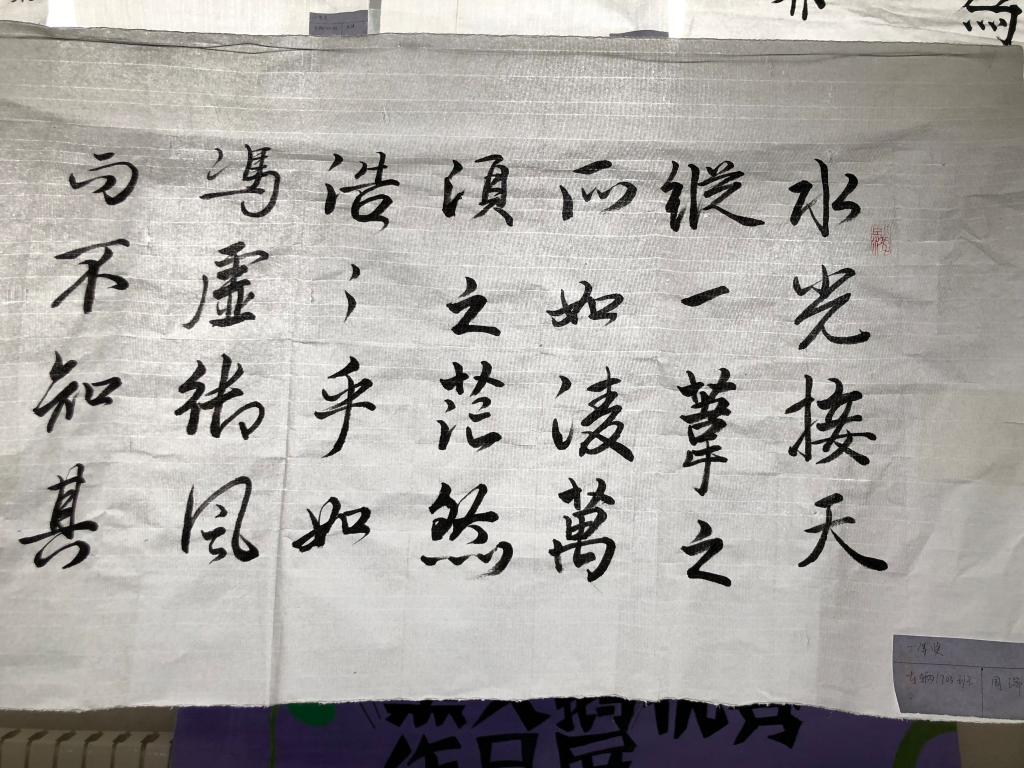 水光接天
縱一葦之
所如淩萬
頃之茫然
浩〻乎如
馮虛御風
而不知其
作品展